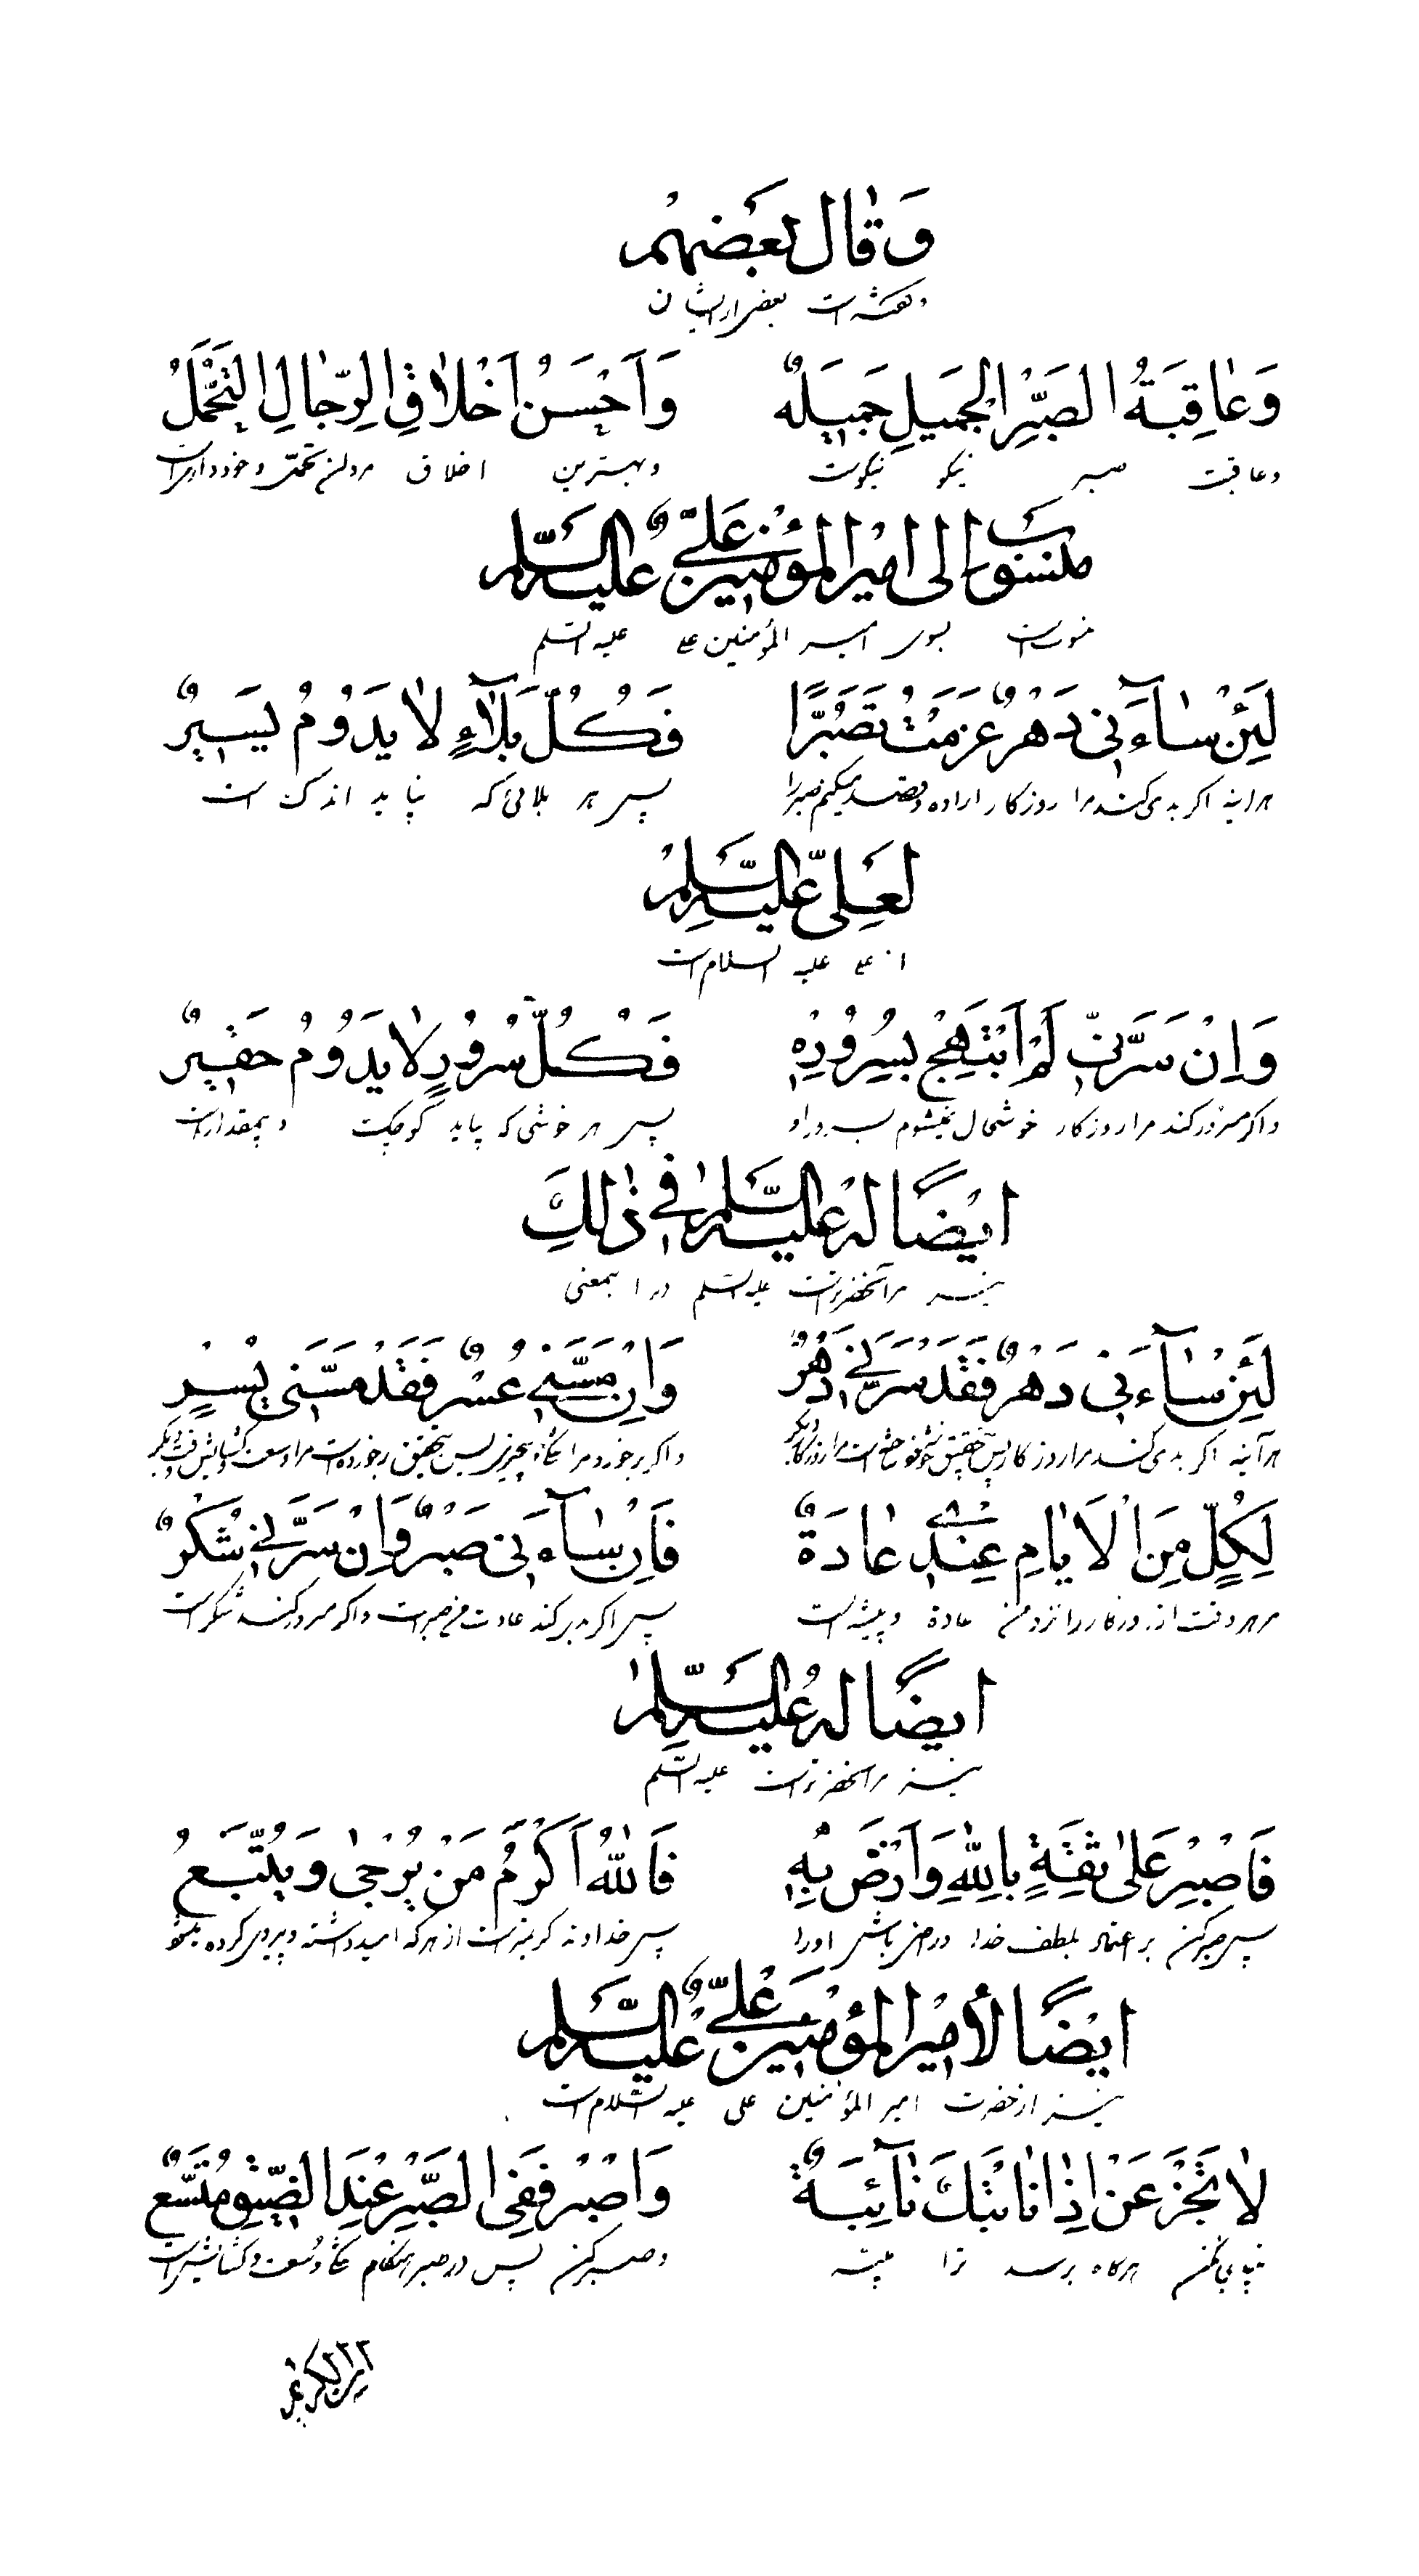 وَقالَ بَعْضُهُمْ
و گفته است بعضی از ایشان
وَعاقِبَةُ الصَّبْرِ الْجَمیلِ جَمیلَةٌ وَاَحْسَنُ اَخْلاقِ الرِّجالِ التَّحَمُّلُ
و عاقبت صبر نیکو نیکوست و بهترین اخلاق مردان تحمّل و خودداریست
مَنْسُوبٌ اِلی اَمیرِ الْمُؤْمِنینَ عَلِیٍّ عَلَیْهِ السَّلامُ
منسوبست بسوی امیر المؤمنین علی علیه السّلم
لَئِنْ سٰاءَنی دَهْرٌ عَزَمْتُ تَصَبُّرًا فَکُلُّ بَلاٰءٍ لا یَدُومُ یَسیرٌ
هراینه اگر بدی کند مرا روزگار اراده و قصد میکنم صبر را پس هر بلائی که نپاید اندک است
لِعَلِیٍّ عَلَیْهِ السَّلامُ
از علی علیه السلام است
وَاِنْ سَرَّنی لَمْ اَبْتَهِجْ بِسُرُورِهِ فَکُلُّ سُرُورٍ لا یَدُومُ حَقیرٌ
و اگر مسرور کند مرا روزگار خوشحال نمیشوم بسرور او پس هر خوشی که نپاید کوچکست و بیمقدار است
اَیْضًا لَهُ عَلَیْهِ السَّلامُ فی ذٰلِکَ
نیز مر آنحضرتراست علیه السّلم در این معنی
لَئِنْ سٰاءَنی دَهْرٌ فَقَدْ سَرَّنی دَهْرٌ وَاِنْ مَسَّنی عُسْرٌ فَقَدْ مَسَّنی یُسْرٌ
هرآینه اگر بدی کند مرا روزگار پس بتحقیق
لِکُلٍّ مِنَ الْاَیّامِ عِنْدی عادَةٌ فَاِنْ سٰاءَنی صَبْرٌ وَاِنْ سَرَّنی شُکْرٌ
عادة و پیشه است پس اگر بد کند عادت من صبر است و اگر مسرور کند شکر است
اَیْضًا لَهُ عَلَیْهِ السَّلامُ
نیز مر آنحضرتراست علیه السّلم
فَاصْبِرْ عَلی ثِقَةٍ بِاللهِ وَارْضَ بِهِ فَاللهُ اَکْرَمُ مَنْ یُرْجی وَیُتَّبَعُ
پس صبر کن بر اعتماد بلطف خدا و راضی باش او را پس خداوند کریمتر است از هر که امید داشته و پیروی کرده میشود
اَیْضًا لِاَمیرِ الْمُؤْمِنینَ عَلِیٍّ عَلَیْهِ السَّلامُ
نیز از حضرت امیر المؤمنین علی علیه السّلام است
لا تَجْزَعَنْ اِذا نابَتْکَ نآئِبَةٌ وَاصْبِرْ فَفِی الصَّبْرِ عِنْدَ الضّیقِ مُتَّسَعٌ
بیتابی مکن هرگاه برسد ترا و صبر کن پس در صبر هنگام